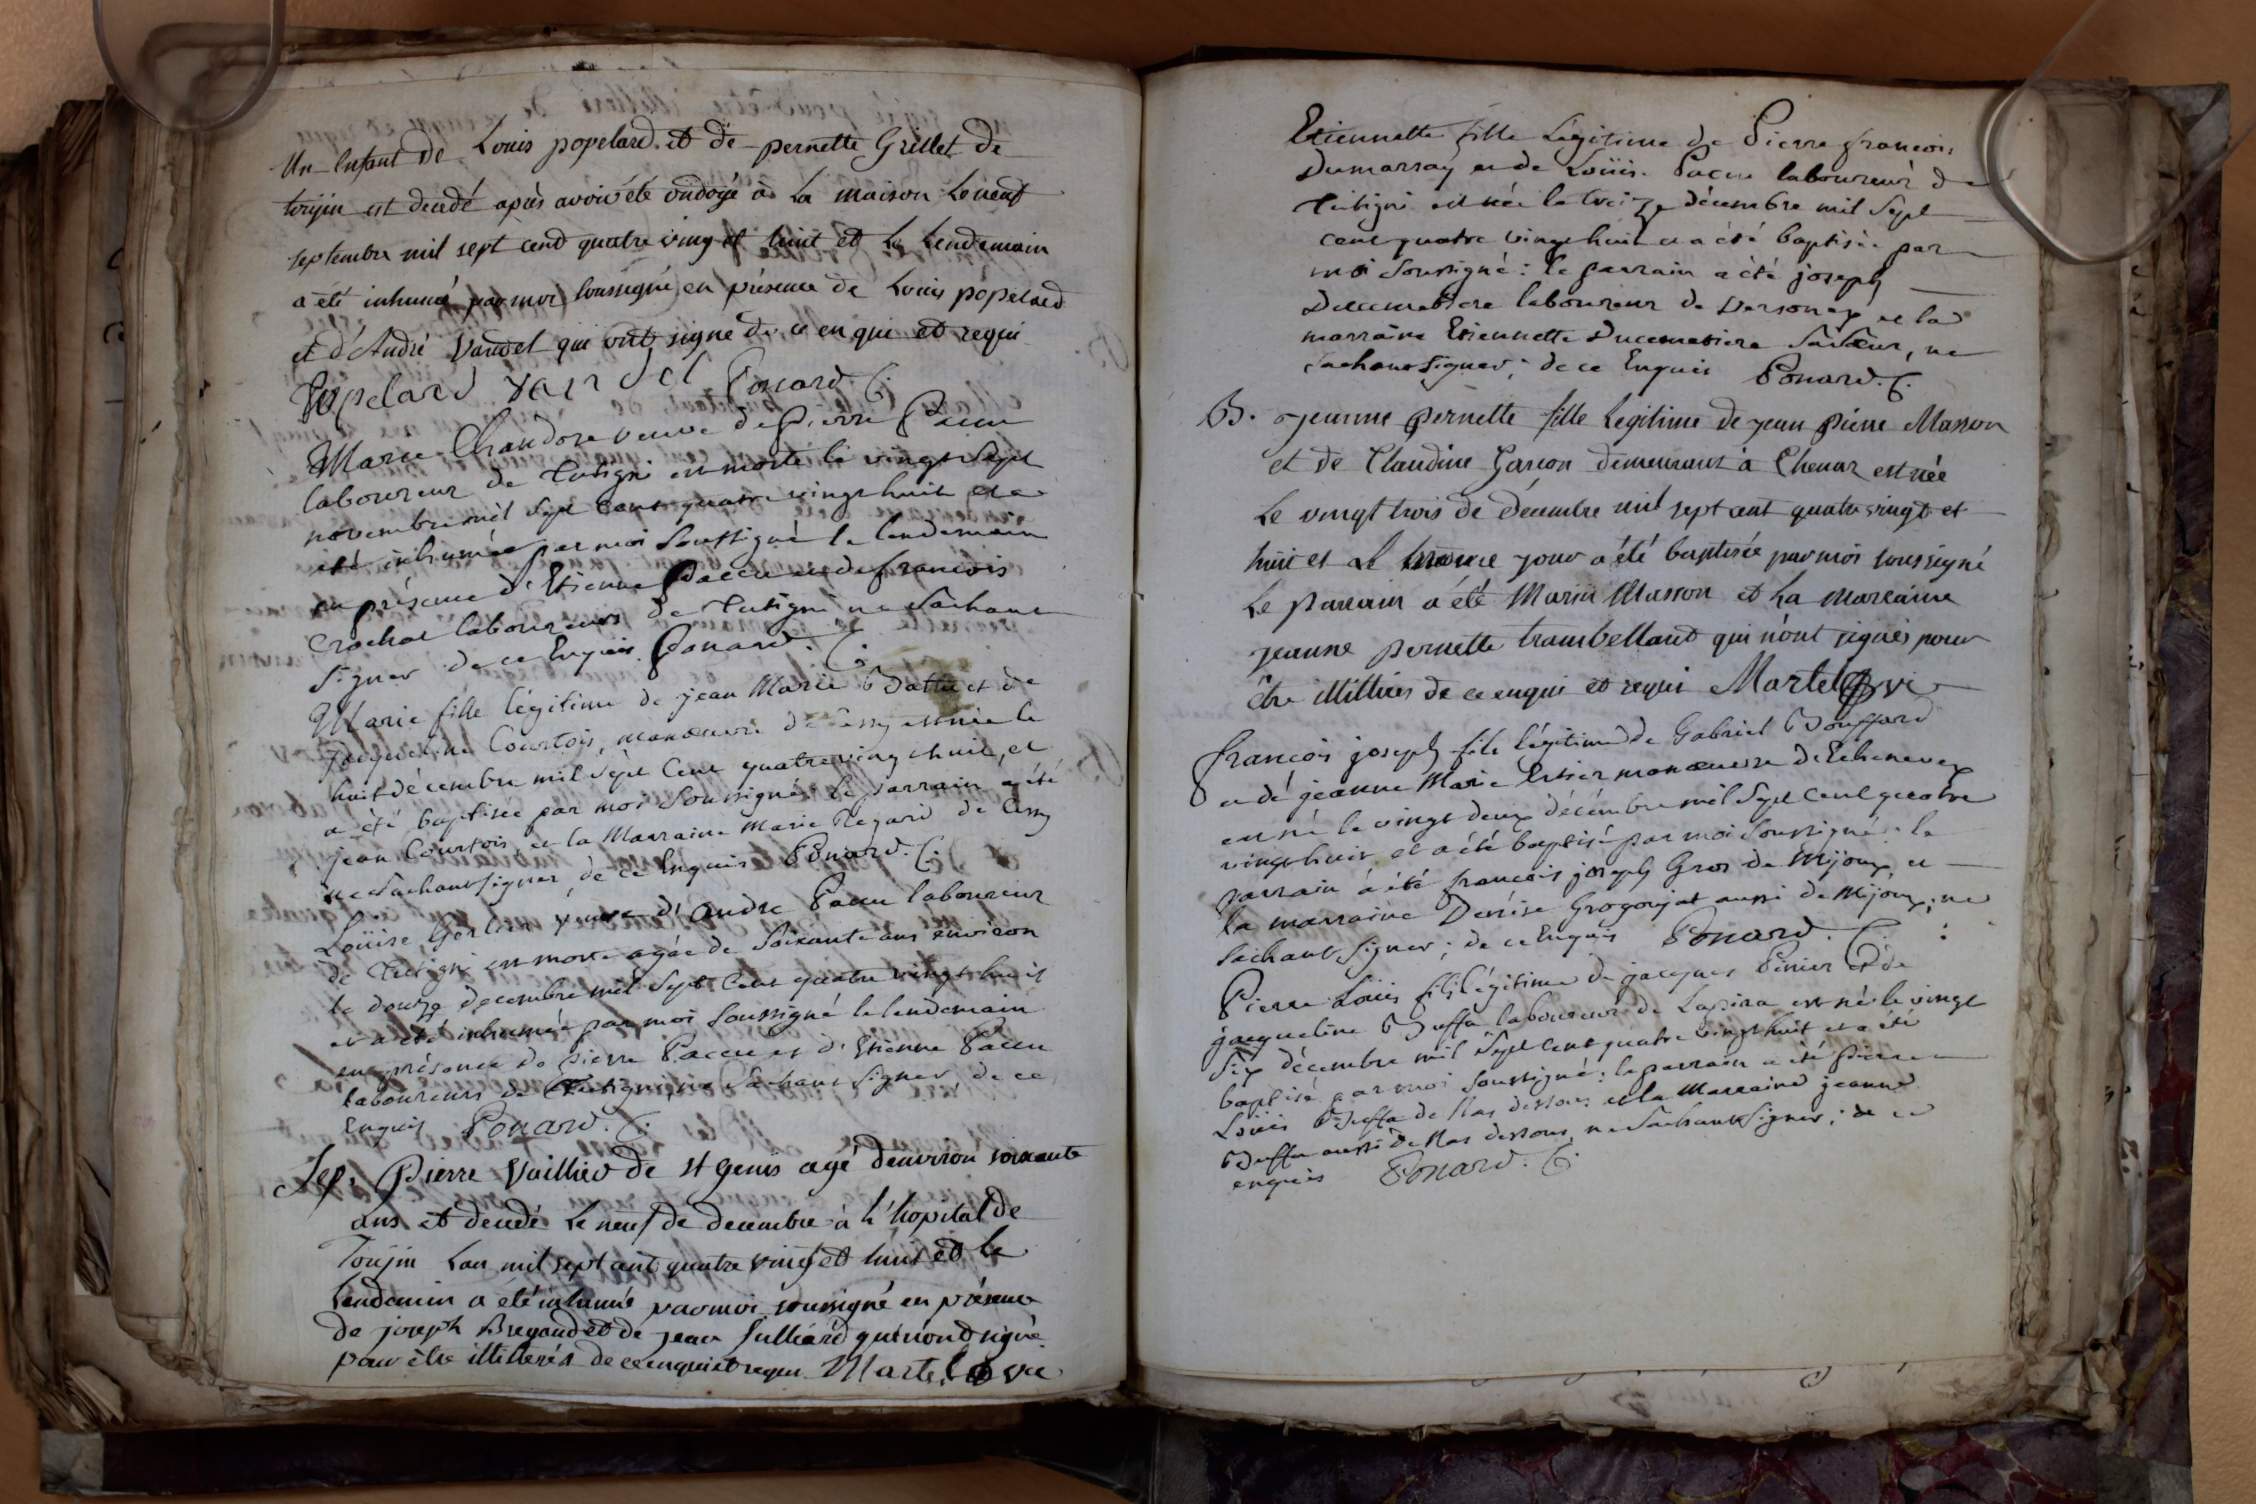 Un Enfant de Louis popelard et de pernette Grillet de
torjin est décédé après avoir été ondoyé à la maison Le neuf
septembre mil sept cent quatre ving et huit et Le Lendemain
a été inhumé par moi soussigné en présence de Louis popelard
et d'André Vandel qui ont signé de ce enqui et requi
Popelard vandel Ponard. C.
Marie Chandore veuve de Pierre Paccu
laboureur de Tutigni est morte le vingt Sept
novembre mil Sept Cent quatre vingt huit et a
été inhumée par moi Soussigné le lendemain
en présence d'Etienne Paccu et de françois
Crochat laboureurs de Tutigni ne Sachant
Signer de ce Enquis. Ponard. C.
Marie fille légitime de jean Marie Battu et de
Jacqueline Courtois, manœuvre de Cessy est née le
huit décembre mil Sept Cent quatre vingt huit, et
a été baptisée par moi Soussigné: le parrain a été
jean Courtois, et la Marraine Marie Regard de Cessy
ne Sachant signer, de ce Enquis Ponard. C.
Loüise veuve d'André Paccu laboureur
de Tutigni est morte agée de Soixante ans environ
le douze decembre mil Sept Cent quatre vingt huit
et a été inhumée par moi Soussigné le lendemain
en présence de Pierre Paccu et d'Etienne Paccu
laboureurs de Tutigni, ne Sachant Signer de ce
Enquis Ponard. C.
Sep. Pierre Vaillier de st Genis agé d'environ soixante
ans est decedé Le neuf de decembre à L'hopital de
Toujin Lan mil sept cent quatre vingt et huit et le
Lendemin a été inhumé par moi soussigné en présence
de joseph Bregand et de jean Sulliard qui n'ont signé
pour être illitterés de ce enqui et requi Martel vic
Etiennette fille Légitime de Pierre francois
Dumarray et de Loüise Paccu laboureur de
Tutigni est née le treize décembre mil Sept
cent quatre vingt huit et a été baptisée par
moi Soussigné: le parrain a été joseph
Ducemetiere laboureur de Versonex et la
marraine Etiennette Ducemetiere Sa Sœur, ne
Sachant Signer; de ce Enquis Ponard. C.
B. jeanne pernette fille Legitime de jean pierre Masson
et de Claudine Garcon demeurant à Chenaz est née
Le vingt trois de décembre mil sept cent quatre vingt et
huit et Le meme jour a été baptisée par moi soussigné
Le parrain a été Marin Masson et La marraine
jeanne pernette trambelland qui n'ont signés pour
être illittères de ce enqui et requi Martel vic
françois joseph fils légitime de Gabriel Bouffard
et de jeanne Marie manœuvre d'Echenevex
est né le vingt deux décembre mil Sept Cent quatre
vingt huit et a été baptisé par moi Soussigné: le
parrain a été françois joseph Gros de Mijoux, et
la marraine Denise Grogonjat aussi de Mijoux; ne
Sachant Signer; de ce Enquis Ponard. C.
Pierre Loüis fils légitime de jacques Pinier et de
jacqueline Buffa laboureur de Lapira est né le vingt
Six décembre mil Sept Cent quatre vingt huit et a été
baptisé par moi Soussigné: le parrain a été pierre
Loüis Buffa de Nas dessous et la Marraine jeanne
Buffa aussi de Nas dessous, ne Sachant Signer; de ce
enquis Ponard. C.